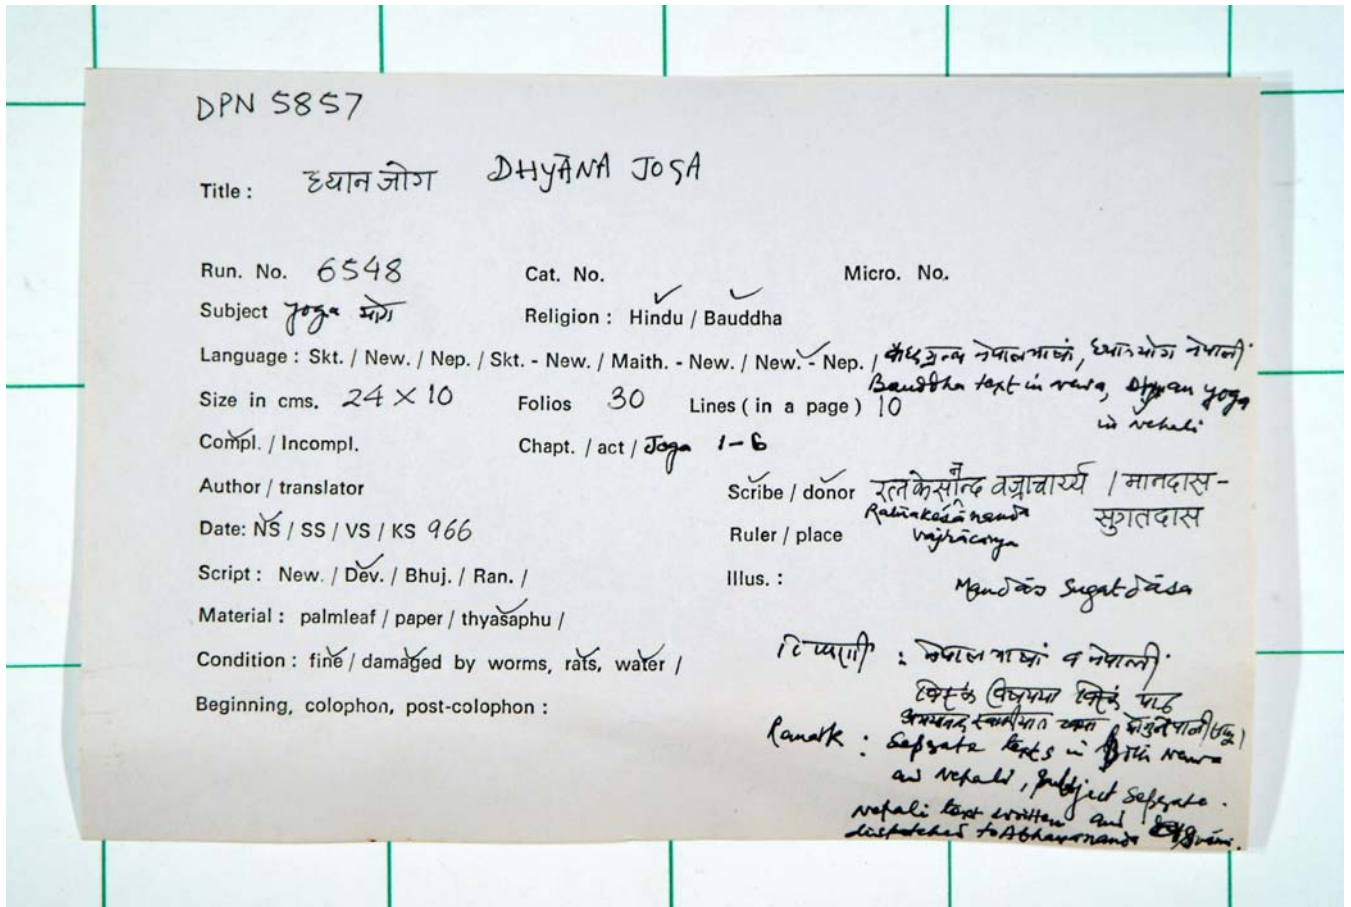 DPN 5857
Title : ध्यान जोग DHYĀNA JOGA
Run. No. 6548 Cat. No. Micro. No.
Subject yoga योग Religion : Hindu / Bauddha
Language : Skt. / New. / Nep. / Skt. - New. / Maith. - New. / New. - Nep. / बौद्ध ग्रन्थ नेपालभाषां, ध्यानयोग नेपाली
Bauddha text in newa, Dhyan yoga
in Nepali
Size in cms. 24 × 10 Folios 30 Lines ( in a page ) 10
Compl. / Incompl. Chapt. / act / Joga 1-6
Author / translator Scribe / donor रत्नकेसानन्द वज्राचार्य्य / मानदास -
सुगतदास
Ratnakesānanda
Vajrācarya
Date: NS / SS / VS / KS 966 Ruler / place
Script : New. / Dev. / Bhuj. / Ran. / Illus. :
Mandās Sugatdāsa
Material : palmleaf / paper / thyasaphu /
Condition : fine / damaged by worms, rats, water /
टिप्पणी : नेपालभाषां व नेपाली
Beginning, colophon, post-colophon :
Remark : Seperate texts in Both Newa
and Nepali, subject seperate.
Nepali text written and
dispatched to Abhayananda Swāmi.